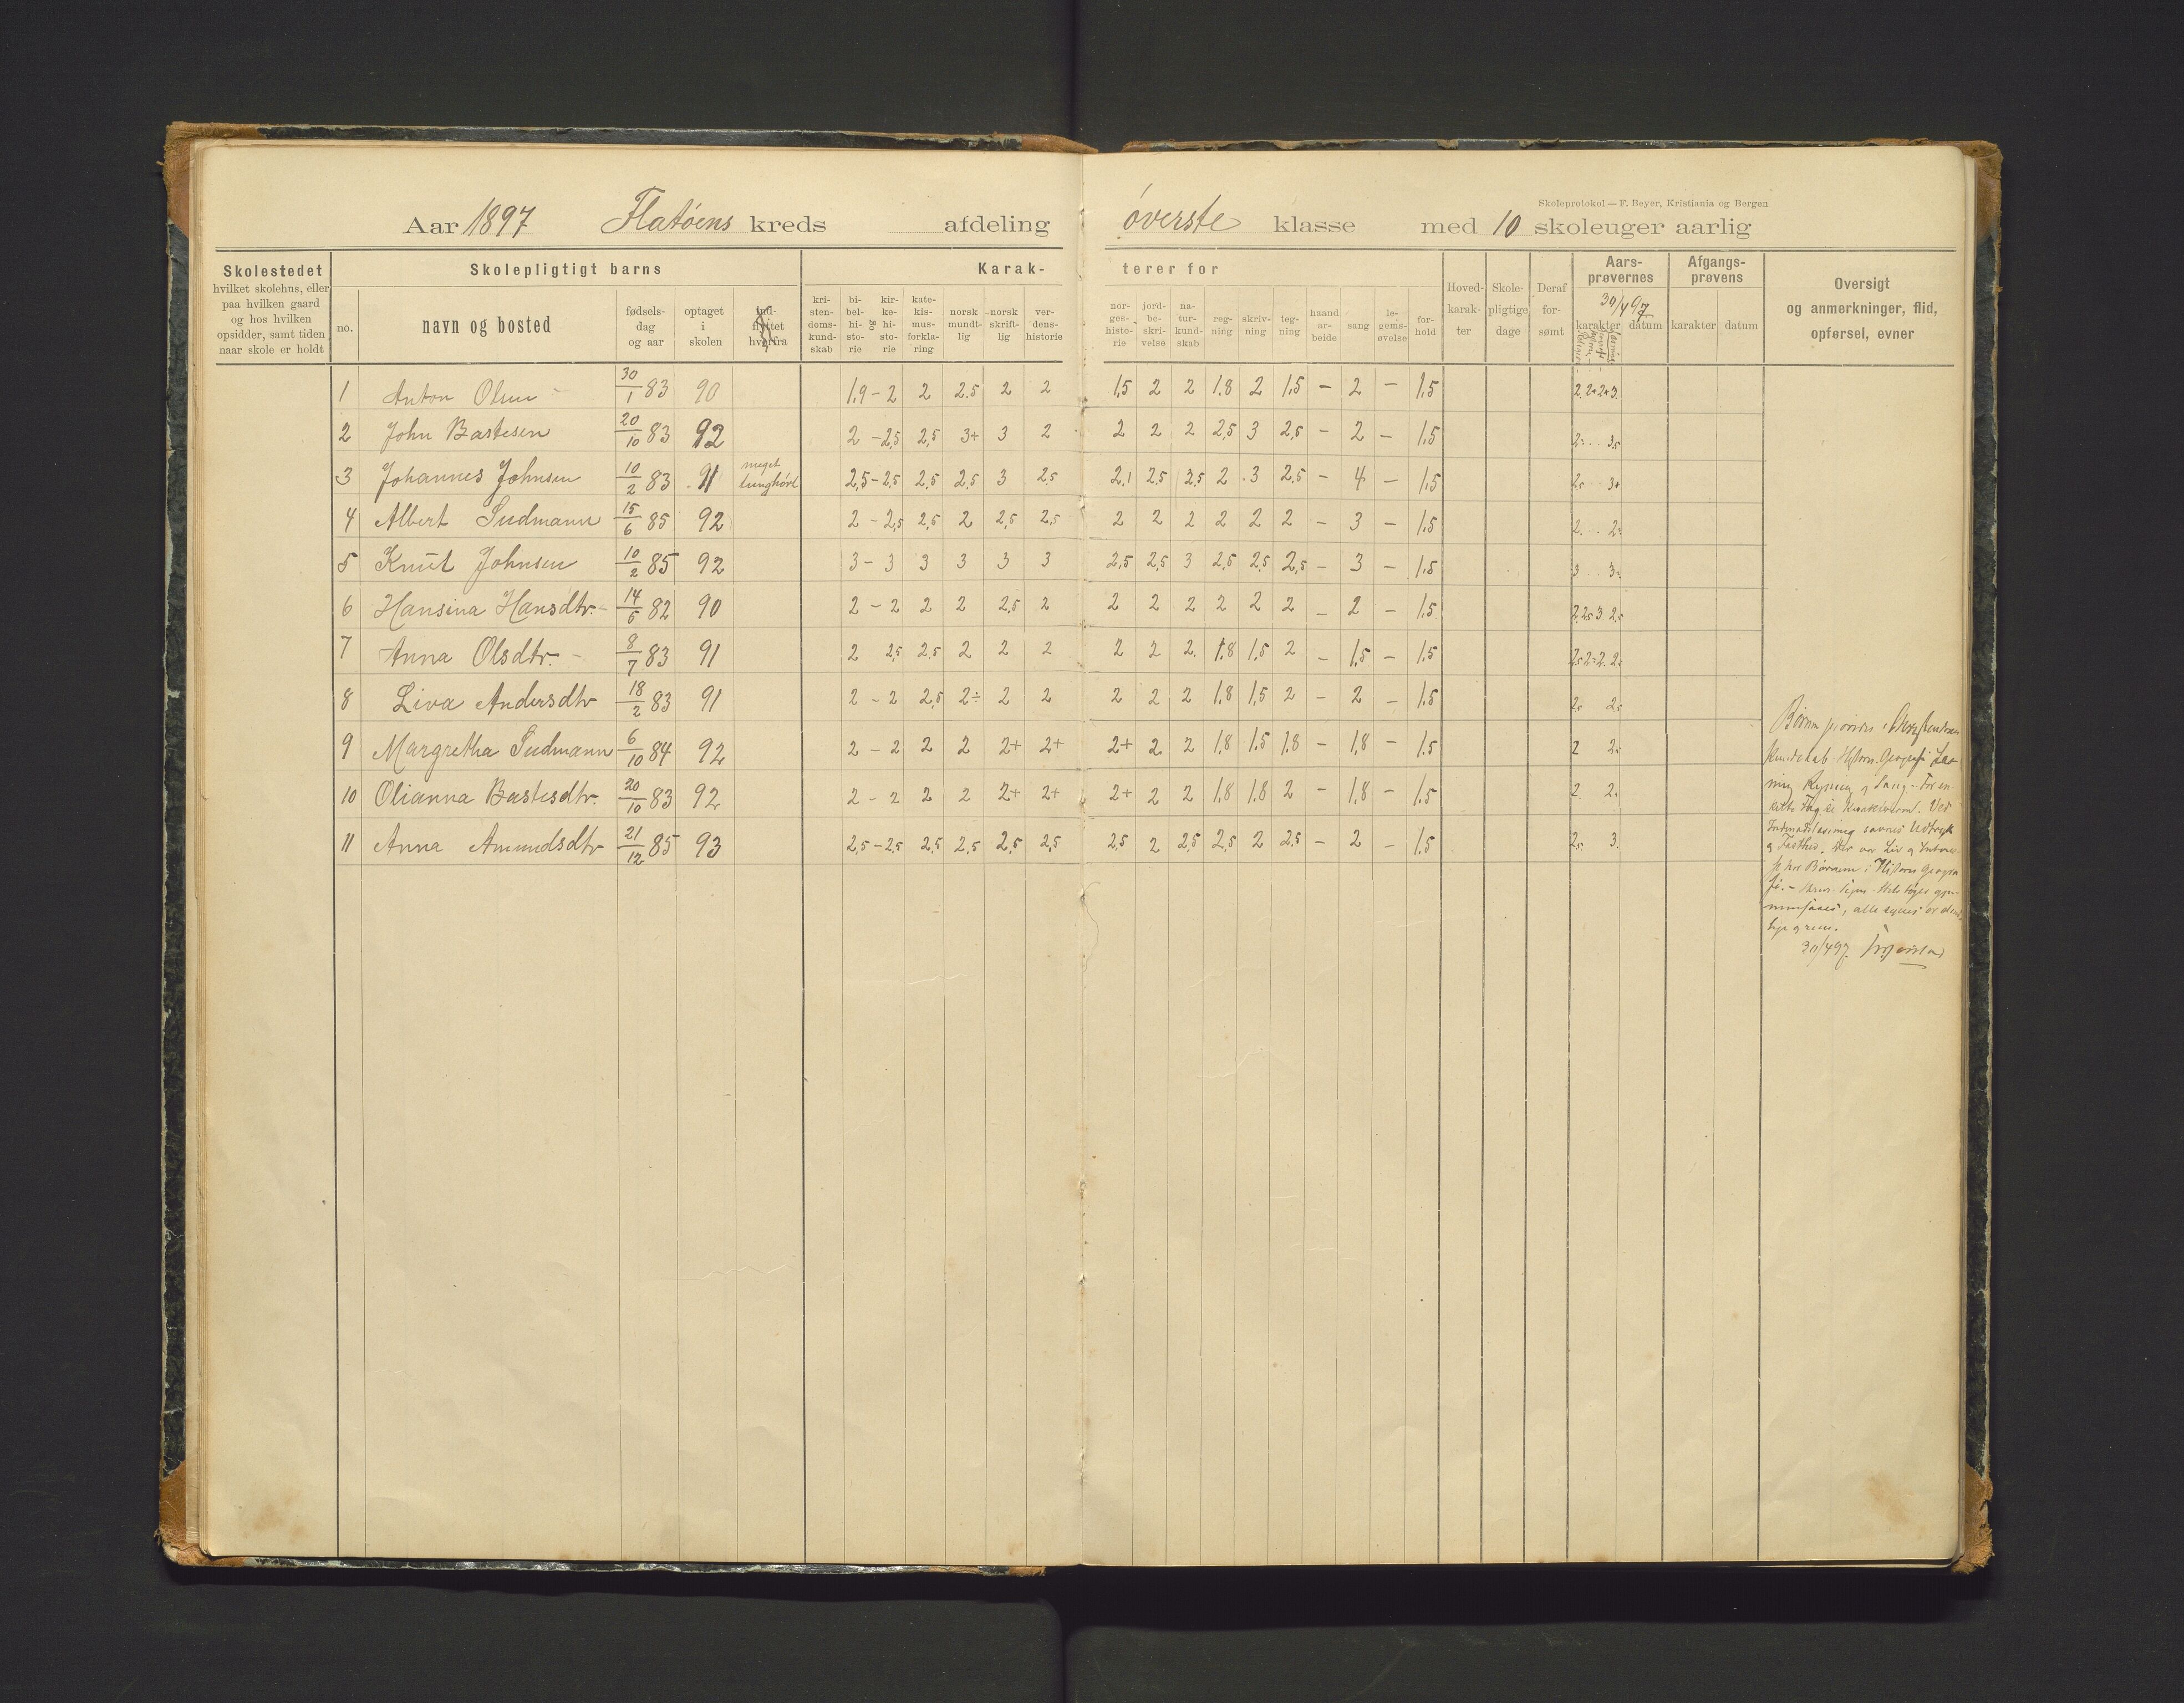 Skoleprotokol — F. Beyer, Kristiania og Bergen
Aar 1897 Flatøens kreds afdeling øverste klasse med 10 skoleuger aarlig
Skolestedet
hvilket skolehus, eller
paa hvilken gaard
og hos hvilken
opsidder, samt tiden
naar skole er holdt
Skolepligtigt barns
no.
navn og bosted
fødsels-
dag
og aar
optaget
i
skolen
ind-
flyttet
hvorfra
Karak-
terer for
kri-
sten-
doms-
kund-
skab
bi-
bel-
hi-
sto-
rie
og
kir-
ke-
hi-
sto-
rie
kate-
kis-
mus-
forkla-
ring
norsk
mundt-
lig
norsk
skrift-
lig
ver-
dens-
historie
nor-
ges-
histo-
rie
jord-
be-
skri-
velse
na-
tur-
kund-
skab
reg-
ning
skriv-
ning
teg-
ning
haand
ar-
beide
sang
le-
gems-
øvelse
for-
hold
Hoved-
karak-
ter
Skole-
pligtige
dage
Deraf
for-
sømt
Aars-
prøvernes
30/4 97
karakter datum
Afgangs-
prøvens
karakter datum
Oversigt
og anmerkninger, flid,
opførsel, evner
1 Anton Olsen 30/1 83 90 1.9 - 2 2 2.5 2 2 1.5 2 2 1.8 2 1.5 - 2 - 1.5 2. 2+ 2+ 3.
2 John Bastesen 20/10 83 92 2 - 2,5 2,5 3+ 3 2 2 2 2 2,5 3 2,5 - 2 - 1.5
3 Johannes Johnsen 10/2 83 91 meget tunghørt 2,5 - 2,5 2,5 2,5 3 2,5 2.1 2,5 3.5 2 3 2.5 - 4 - 1.5
4 Albert Sudmann 15/6 85 92 2 - 2,5 2,5 2 2,5 2,5 2 2 2 2 2 2 - 3 - 1.5
5 Knut Johnsen 10/2 85 92 3 - 3 3 3 3 3 2,5 2,5 3 2,5 2,5 2,5 - 3 - 1.5
6 Hansina Hansdtr. 14/5 82 90 2 - 2 2 2 2,5 2 2 2 2 2 2 2 - 2 - 1.5
7 Anna Olsdtr. 8/7 83 91 2 2,5 2,5 2 2 2 2 2 2 1.8 1.5 2 - 1.5 - 1.5
8 Liva Andersdtr 18/2 83 91 2 - 2 2,5 2÷ 2 2 2 2 2 1.8 1.5 2 - 2 - 1.5
9 Margretha Sudmann 6/10 84 92 2 - 2 2 2 2+ 2+ 2+ 2 2 1.8 1.5 1.8 - 1.8 - 1.5
10 Olianna Bastesdtr. 20/10 83 92 2 - 2 2 2 2+ 2+ 2+ 2 2 1.8 1.8 2 - 1.8 - 1.5
11 Anna Amundsdtr 21/12 85 93 2,5 - 2,5 2,5 2,5 2,5 2,5 2,5 2 2,5 2,5 2 2.5 - 2 - 1.5
Børnene prøvedes i Christendoms
Kundskab Historie Geografi Læs-
ning Regning og Sang
Ved
Indenadslæsning savnes Udtryk
Der var Liv og Interes-
se hos Børnene i Historie Geogra
fi.
30/4 97.